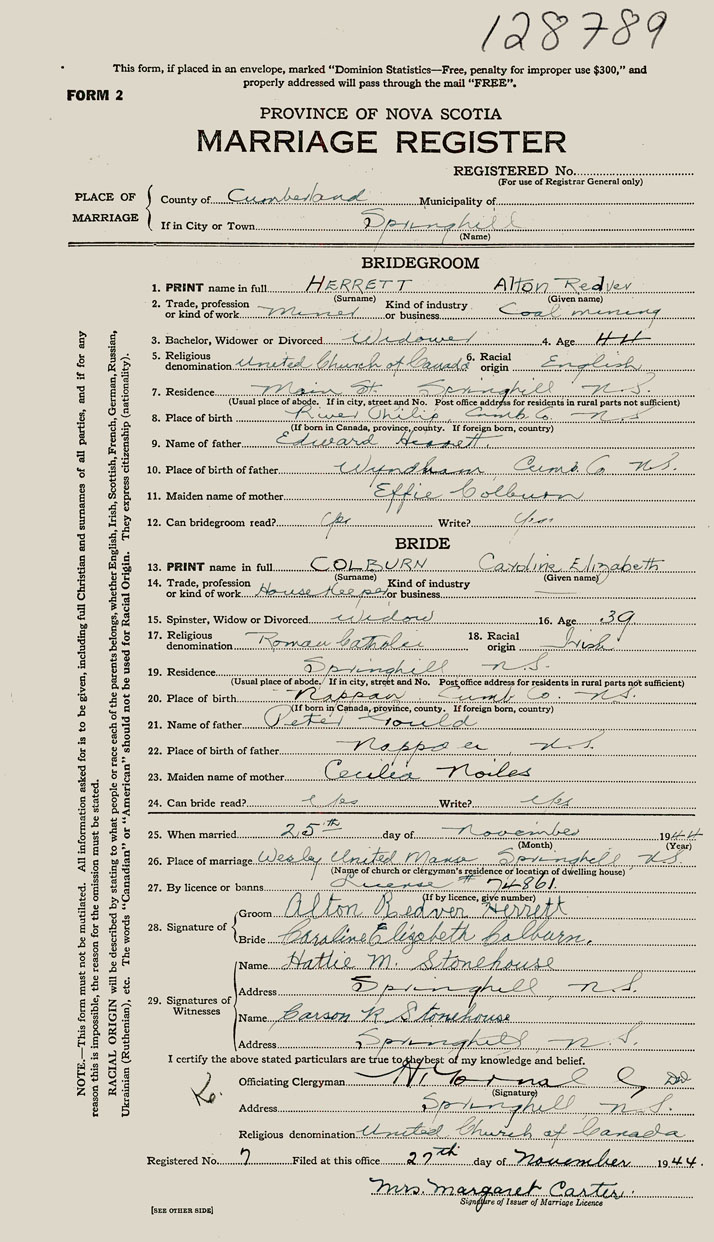 128789
This form, if placed in an envelope, marked "Dominion Statistics—Free, penalty for improper use $300," and
properly addressed will pass through the mail "FREE".
FORM 2
PROVINCE OF NOVA SCOTIA
MARRIAGE REGISTER
REGISTERED No.
(For use of Registrar General only)
PLACE OF MARRIAGE
County of Cumberland Municipality of
If in City or Town Springhill
(Name)
BRIDEGROOM
1. PRINT name in full HERRETT Alton Redver
(Surname) (Given name)
2. Trade, profession or kind of work Miner Kind of industry or business Coal mining
3. Bachelor, Widower or Divorced Widower 4. Age 44
5. Religious denomination United Church of Canada 6. Racial origin English
7. Residence Main St. Springhill N.S.
(Usual place of abode. If in city, street and No. Post office address for residents in rural parts not sufficient)
8. Place of birth River Philip Cumb Co. N.S
(If born in Canada, province, county. If foreign born, country)
9. Name of father Edward Herrett
10. Place of birth of father Wyndham Cumb. Co N.S.
11. Maiden name of mother Effie Colburn
12. Can bridegroom read? yes Write? yes
BRIDE
13. PRINT name in full COLBURN Caroline Elizabeth
(Surname) (Given name)
14. Trade, profession or kind of work House Keeper Kind of industry or business —
15. Spinster, Widow or Divorced Widow 16. Age 39
17. Religious denomination Roman Catholic 18. Racial origin Irish
19. Residence Springhill N.S.
(Usual place of abode. If in city, street and No. Post office address for residents in rural parts not sufficient)
20. Place of birth Nappan Cumb Co. N.S.
(If born in Canada, province, county. If foreign born, country)
21. Name of father Peter Gould
22. Place of birth of father Nappan, N.S.
23. Maiden name of mother Cecilia Noiles
24. Can bride read? Yes Write? Yes
25. When married 25th day of November 1944
(Month) (Year)
26. Place of marriage Wesley United Manse Springhill, N.S
(Name of church or clergyman's residence or location of dwelling house)
27. By licence or banns License # 74861.
(If by licence, give number)
28. Signature of
Groom Alton Redver Herrett
Bride Caroline Elizabeth Colburn.
29. Signatures of Witnesses
Name Hattie M. Stonehouse
Address Springhill, N.S.
Name Carson R Stonehouse
Address Springhill, N.S.
I certify the above stated particulars are true to the best of my knowledge and belief.
Officiating Clergyman
(Signature)
Address Springhill N.S.
Religious denomination United Church of Canada
Registered No. 7 Filed at this office 27th day of November 1944.
Mrs. Margaret Carter.
Signature of Issuer of Marriage Licence
[SEE OTHER SIDE]
NOTE.—This form must not be mutilated. All information asked for is to be given, including full Christian and surnames of all parties, and if for any
reason this is impossible, the reason for the omission must be stated.
RACIAL ORIGIN will be described by stating to what people or race each of the parents belongs, whether English, Irish, Scottish, French, German, Russian,
Ukrainian (Ruthenian), etc. The words "Canadian" or "American" should not be used for Racial Origin. They express citizenship (nationality).